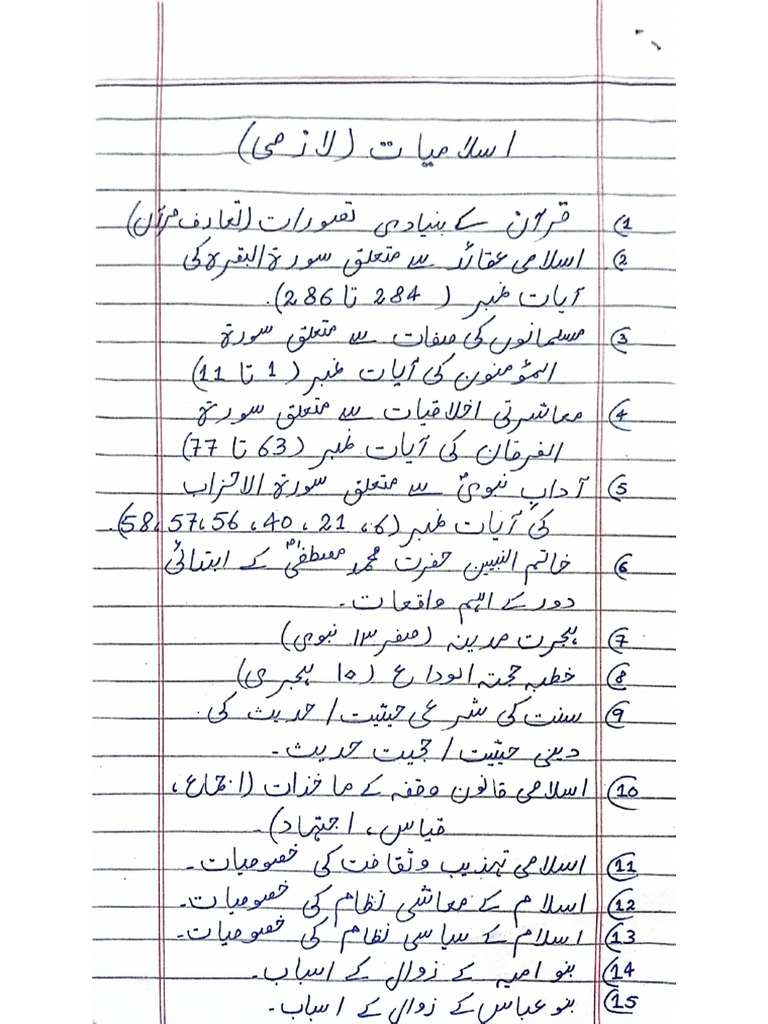 اسلامیات (لازمی)
1) قرآن کے بنیادی تصورات (تعارف قرآن)
2) اسلامی عقائد سے متعلق سورة البقرة کی
آیات نمبر (284 تا 286).
3) مسلمانوں کی صفات سے متعلق سورة
المؤمنون کی آیات نمبر (1 تا 11)
4) معاشرتی اخلاقیات سے متعلق سورة
الفرقان کی آیات نمبر (63 تا 77)
5) آداب نبویؐ سے متعلق سورة الاحزاب
کی آیات نمبر (6، 21، 40، 56، 57، 58).
6) خاتم النبیین حضرت محمد مصطفیٰؐ کے ابتدائی
دور کے اہم واقعات۔
7) ہجرت مدینہ (صفر ۱۳ نبوی)
8) خطبہ حجتہ الوداع (۱۰ ہجری)
9) سنت کی شرعی حیثیت / حدیث کی
دینی حیثیت / حجیت حدیث۔
10) اسلامی قانون وفقہ کے ماخذات (اجماع،
قیاس، اجتہاد)۔
11) اسلامی تہذیب وثقافت کی خصوصیات۔
12) اسلام کے معاشی نظام کی خصوصیات۔
13) اسلام کے سیاسی نظام کی خصوصیات۔
14) بنو امیہ کے زوال کے اسباب۔
15) بنو عباس کے زوال کے اسباب۔